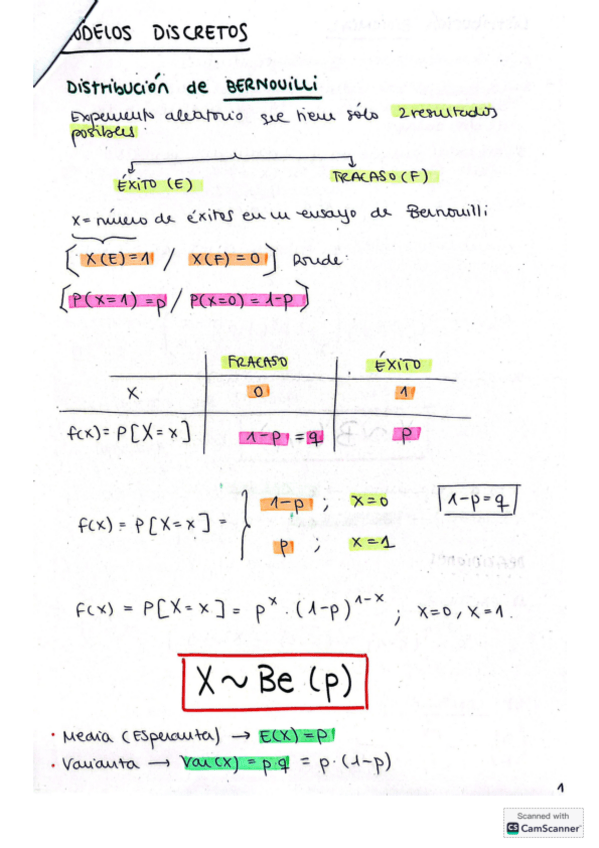 ODELOS DISCRETOS
Distribución de BERNOUILLI
Expemento aleatorio que tiene sólo 2 resultados
posibles
ÉXITO (E) FRACASO (F)
X = número de éxitos en un ensayo de Bernouilli
[X(E)=1 / X(F)=0] Donde:
[P(X=1)=p / P(X=0)=1-p]
FRACASO ÉXITO
X 0 1
f(x)=P[X=x] 1-p=q p
f(x)=P[X=x]= { 1-p ; x=0 1-p=q
p ; x=1
f(x) = P[X=x] = p^x · (1-p)^1-x ; x=0, x=1.
X ~ Be (p)
· Media (Esperanza) → E(X)=p
· Varianza → Var(X) = p·q = p·(1-p)
1
Scanned with
CS CamScanner